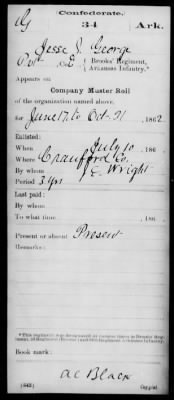 G
Confederate.
34
Ark.
Jesse J. George
Pvt Co. E (Brooks' Regiment,
Arkansas Infantry.*
Appears on
Company Muster Roll
of the organization named above,
for June 17 to Oct 31, 1862.
Enlisted:
When July 10, 186 .
Where Crawford Co.
By whom J. C. Wright
Period 3 Yrs
Last paid:
By whom
To what time , 186 .
Present or absent Present
Remarks:
Book mark:
A C Black
(642) Copyist.